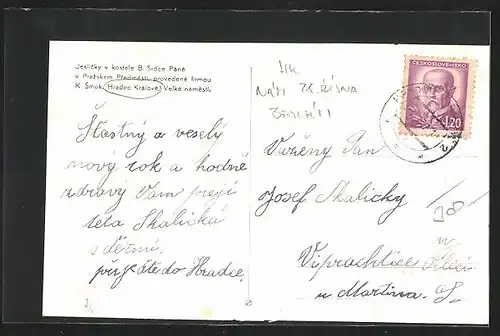 Jesličky v kostele B. Srdce Páně
v Pražském Předměstí, provedené firmou
K. Šmok, Hradec Králové, Velké náměstí.
ČESKOSLOVENSKO
1.20
Šťastný a veselý
nový rok a hodně
zdraví Vám přejí
teta Skalická
s dětmi.
přijeďte do Hradce.
Vážený Pan
Josef Skalický
Viprachtice
u Martina